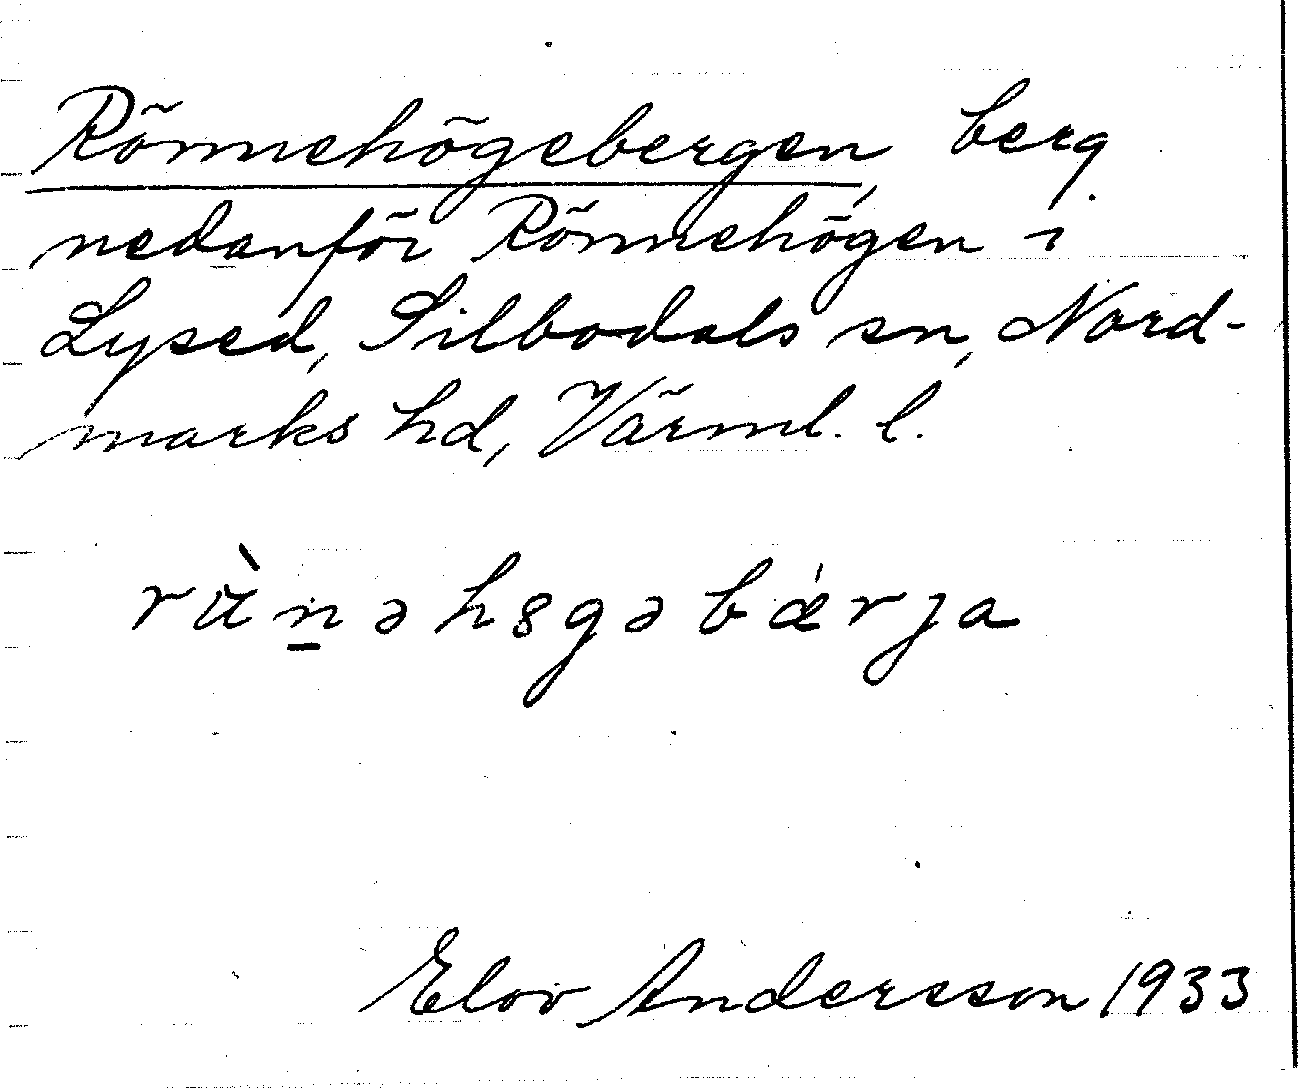 Rönnehögebergen, berg
nedanför Rönnehögen i
Lysed, Silbodals sn, Nord-
marks hd, Värml. l.
Elov Andersson 1933